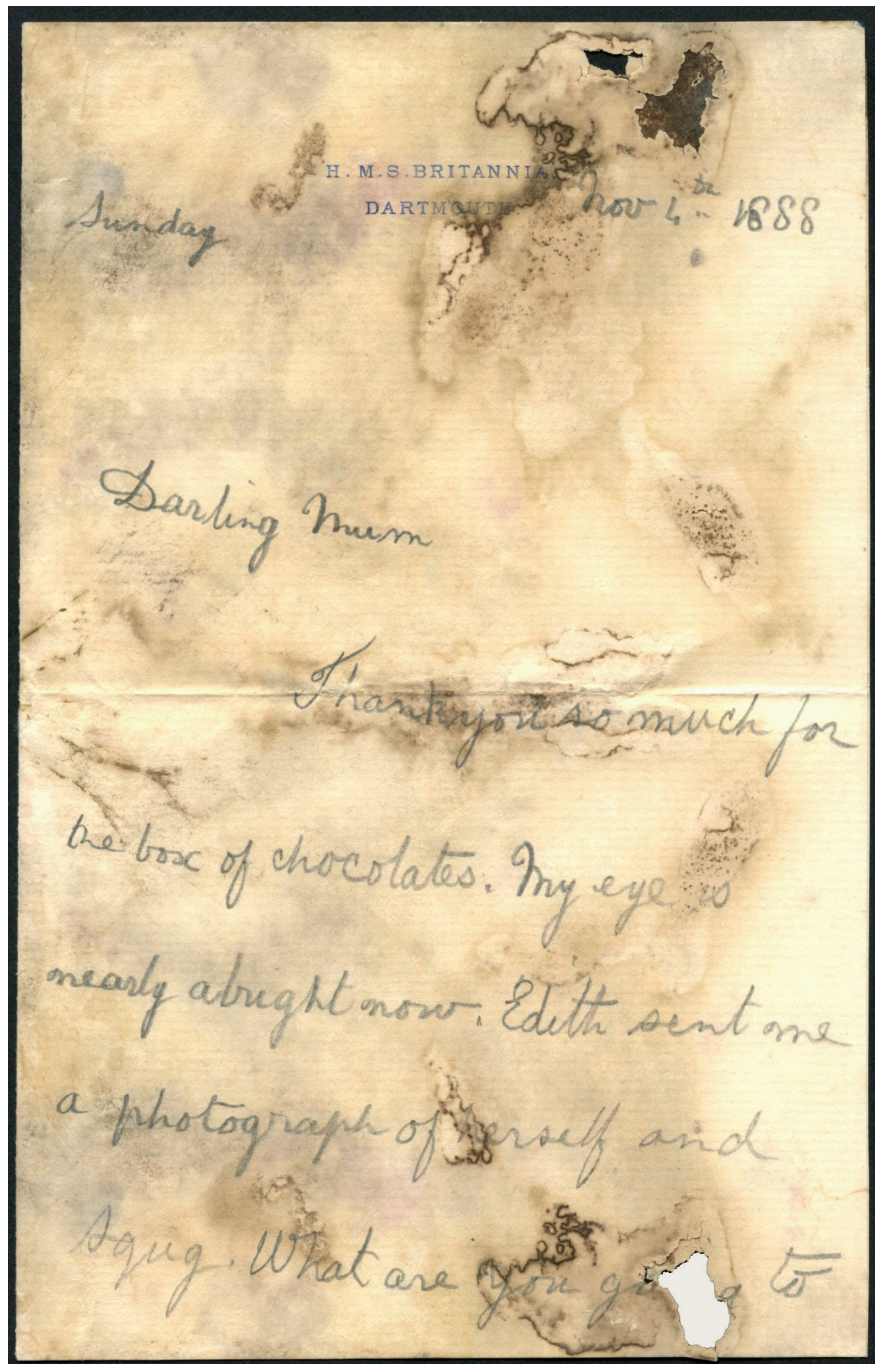 H.M.S.BRITANNIA.
DARTMOUTH.
Sunday Nov 4th 1888
Darling Mum
Thank you so much for
the box of chocolates. My eye is
nearly alright now. Edith sent me
a photograph of herself and
Squg. What are you going to